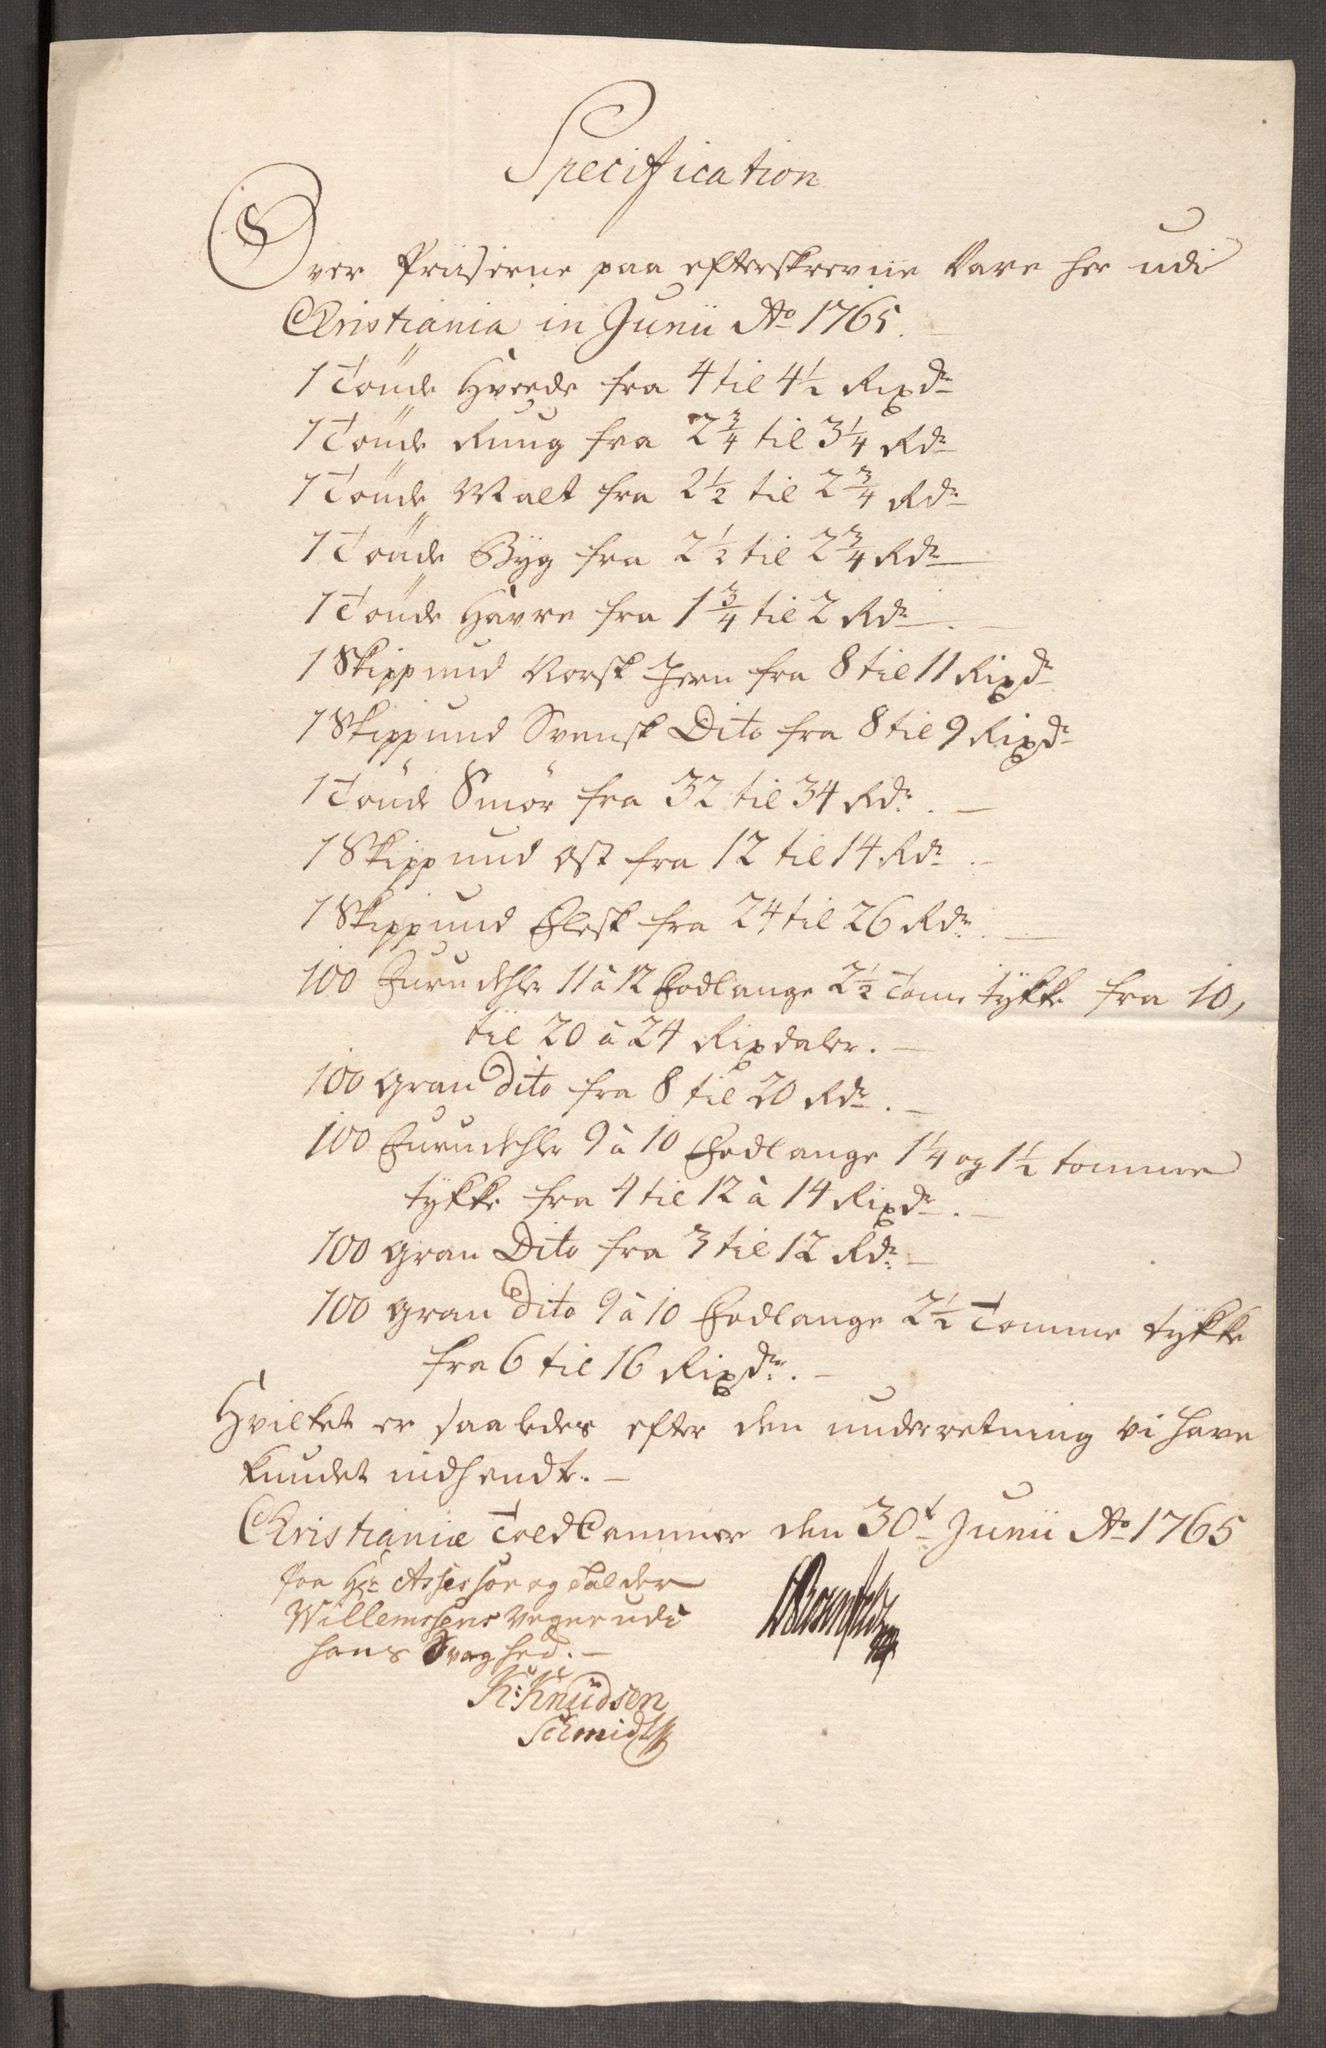 Specification
Over Priiserne paa efterskrevne Vare her udi
Christiania in Junii Ao 1765.
1 Tönde Hvede fra 4 til 4½ Rixdr
1 Tönde Rung fra 2¾ til 3¼ Rdr
1 Tönde Malt fra 2½ til 2¾ Rdr
1 Tönde Byg fra 2½ til 2¾ Rdr
1 Tönde Havre fra 1¾ til 2 Rdr.
1 Skippund Norsk Jern fra 8 til 11 Rixdr
1 Skippund Svensk Dito fra 8 til 9 Rixdr
1 Tönde Smör fra 32 til 34 Rdr.
1 Skippund Ost fra 12 til 14 Rdr.
1 Skippund Flesk fra 24 til 26 Rdr.
100 Furudehler 11 à 12 Fodlange 2½ Tome tykke fra 10,
til 20 à 24 Rixdaler.
100 Gran Dito fra 8 til 20 Rdr.
100 Furudehler 9 à 10 Fodlange 1¼ og 1½ tomme
tykke fra 4 til 12 à 14 Rixdr.
100 Gran Dito fra 3 til 12 Rdr.
100 Gran Dito 9 à 10 Fodlange 2½ Tomme tykke
fra 6 til 16 Rixdr.
Hvilket er saaledes efter den underretning vi have
kundet indhendte.
Christianiæ Told Cammer den 30t Junii Ao 1765
paa Hr: Assessor og Tolder
Willemsens Vegne udi
hans Svaghed.
K: Knudsen
Schmidt